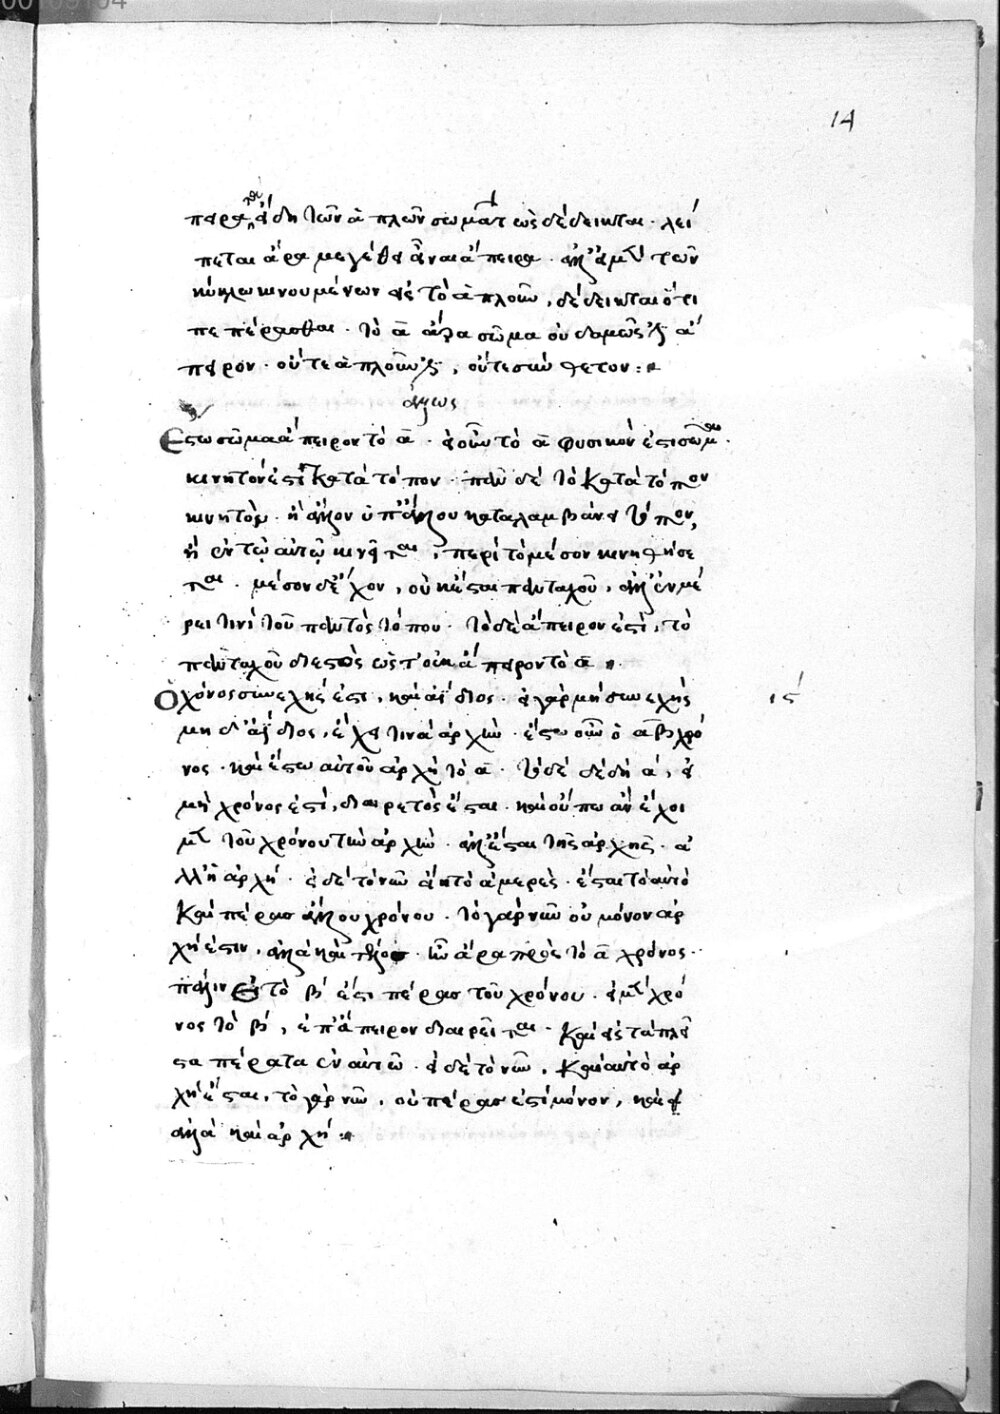 14
πέρα τὰ εἴδη τῶν ἁπλῶν σωμάτ ὡς δέδεικται · λεί
πεται ἄρα μεγέθει εἶναι ἄπειρα · ἀλλ' ἐμ τῶν
κύκλω κινουμένων εἰς τὸ ἁπλοῦν, δέδεικται ὅτι
πεπέρασθαι · τὸ α ἄρα σῶμα οὐδαμῶς ἐστιν ἄ
πειρον · οὔτε ἁπλοῦν ἐστιν, οὔτε σύνθετον :
ἄλλως
Ἔστω σῶμα ἄπειρον τὸ α · εἰ οὖν τὸ α φυσικόν ἐστι σῶμα ·
κινητόν ἐστι κατὰ τόπον · πᾶν δὲ τὸ κατὰ τόπον
κινητὸν · ἢ ἄλλον ὑπ' ἄλλου καταλαμβάνει τόπον,
ἢ ἐν τῷ αὐτῷ κινεῖται, περὶ τὸ μέσον κινηθήσε
ται · μέσον δὲ ἔχον, οὐκ ἔσται πανταχοῦ, ἀλλ' ἐν μέ
ρει τινὶ τοῦ παντὸς τόπου · τὸ δὲ ἄπειρόν ἐστι, τὸ
πανταχοῦ διεστὼς ὥστ' οὐκ ἄπειρον τὸ α
Ὁ χρόνος συνεχής ἐστι, καὶ ἀΐδιος · εἰ γὰρ μὴ συνεχὴς
μὴ δ' ἀΐδιος, ἔχει τινὰ ἀρχὴν · ἔστω οὖν ὁ αβ χρό
νος · καὶ ἔστω αὐτοῦ ἀρχὴ τὸ α · τὸ δὲ δὲ δὴ α, εἰ
μὴ χρόνος ἐστί, διαιρετὸς ἔσται · καὶ οὔπω ἂν ἔχοι
μεν τοῦ χρόνου τὴν ἀρχὴν · ἀλλ' ἔσται τῆς ἀρχῆς · ἀ
λλὴ ἀρχή · εἰ δὲ τὸ νῦν εἴη τὸ ἀμερὲς · ἔσται τὸ αὐτὸ
καὶ πέρας ἄλλου χρόνου · τὸ γὰρ νῦν οὐ μόνον ἀρ
χή ἐστιν, ἀλλὰ καὶ τέλος · ἦν ἄρα πρὸς τὸ α χρόνος ·
πάλιν εἰ τὸ β ἐστι πέρας τοῦ χρόνου · εἰ μὲν χρό
νος τὸ β, ἐπ' ἄπειρον διαιρεῖται · καὶ εἰς τὰ πλεῖ
στα πέρατα ἐν αὐτῶ · εἰ δὲ τὸ νῦν, καὶ αὐτὸ ἀρ
χὴ ἔσται, τὸ γὰρ νῦν, οὐ πέρας ἐστὶ μόνον, καὶ
ἀλλὰ καὶ ἀρχή :
ις